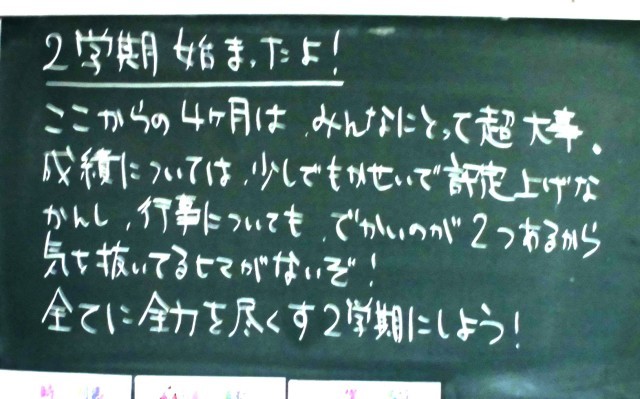 2学期始まったよ!
ここからの4ヶ月は、みんなにとって超大事。
成績については、少しでもかせいで評定上げな
かんし、行事についても、でかいのが2つあるから
気を抜いてるヒマがないぞ!
全てに全力を尽くす2学期にしよう!